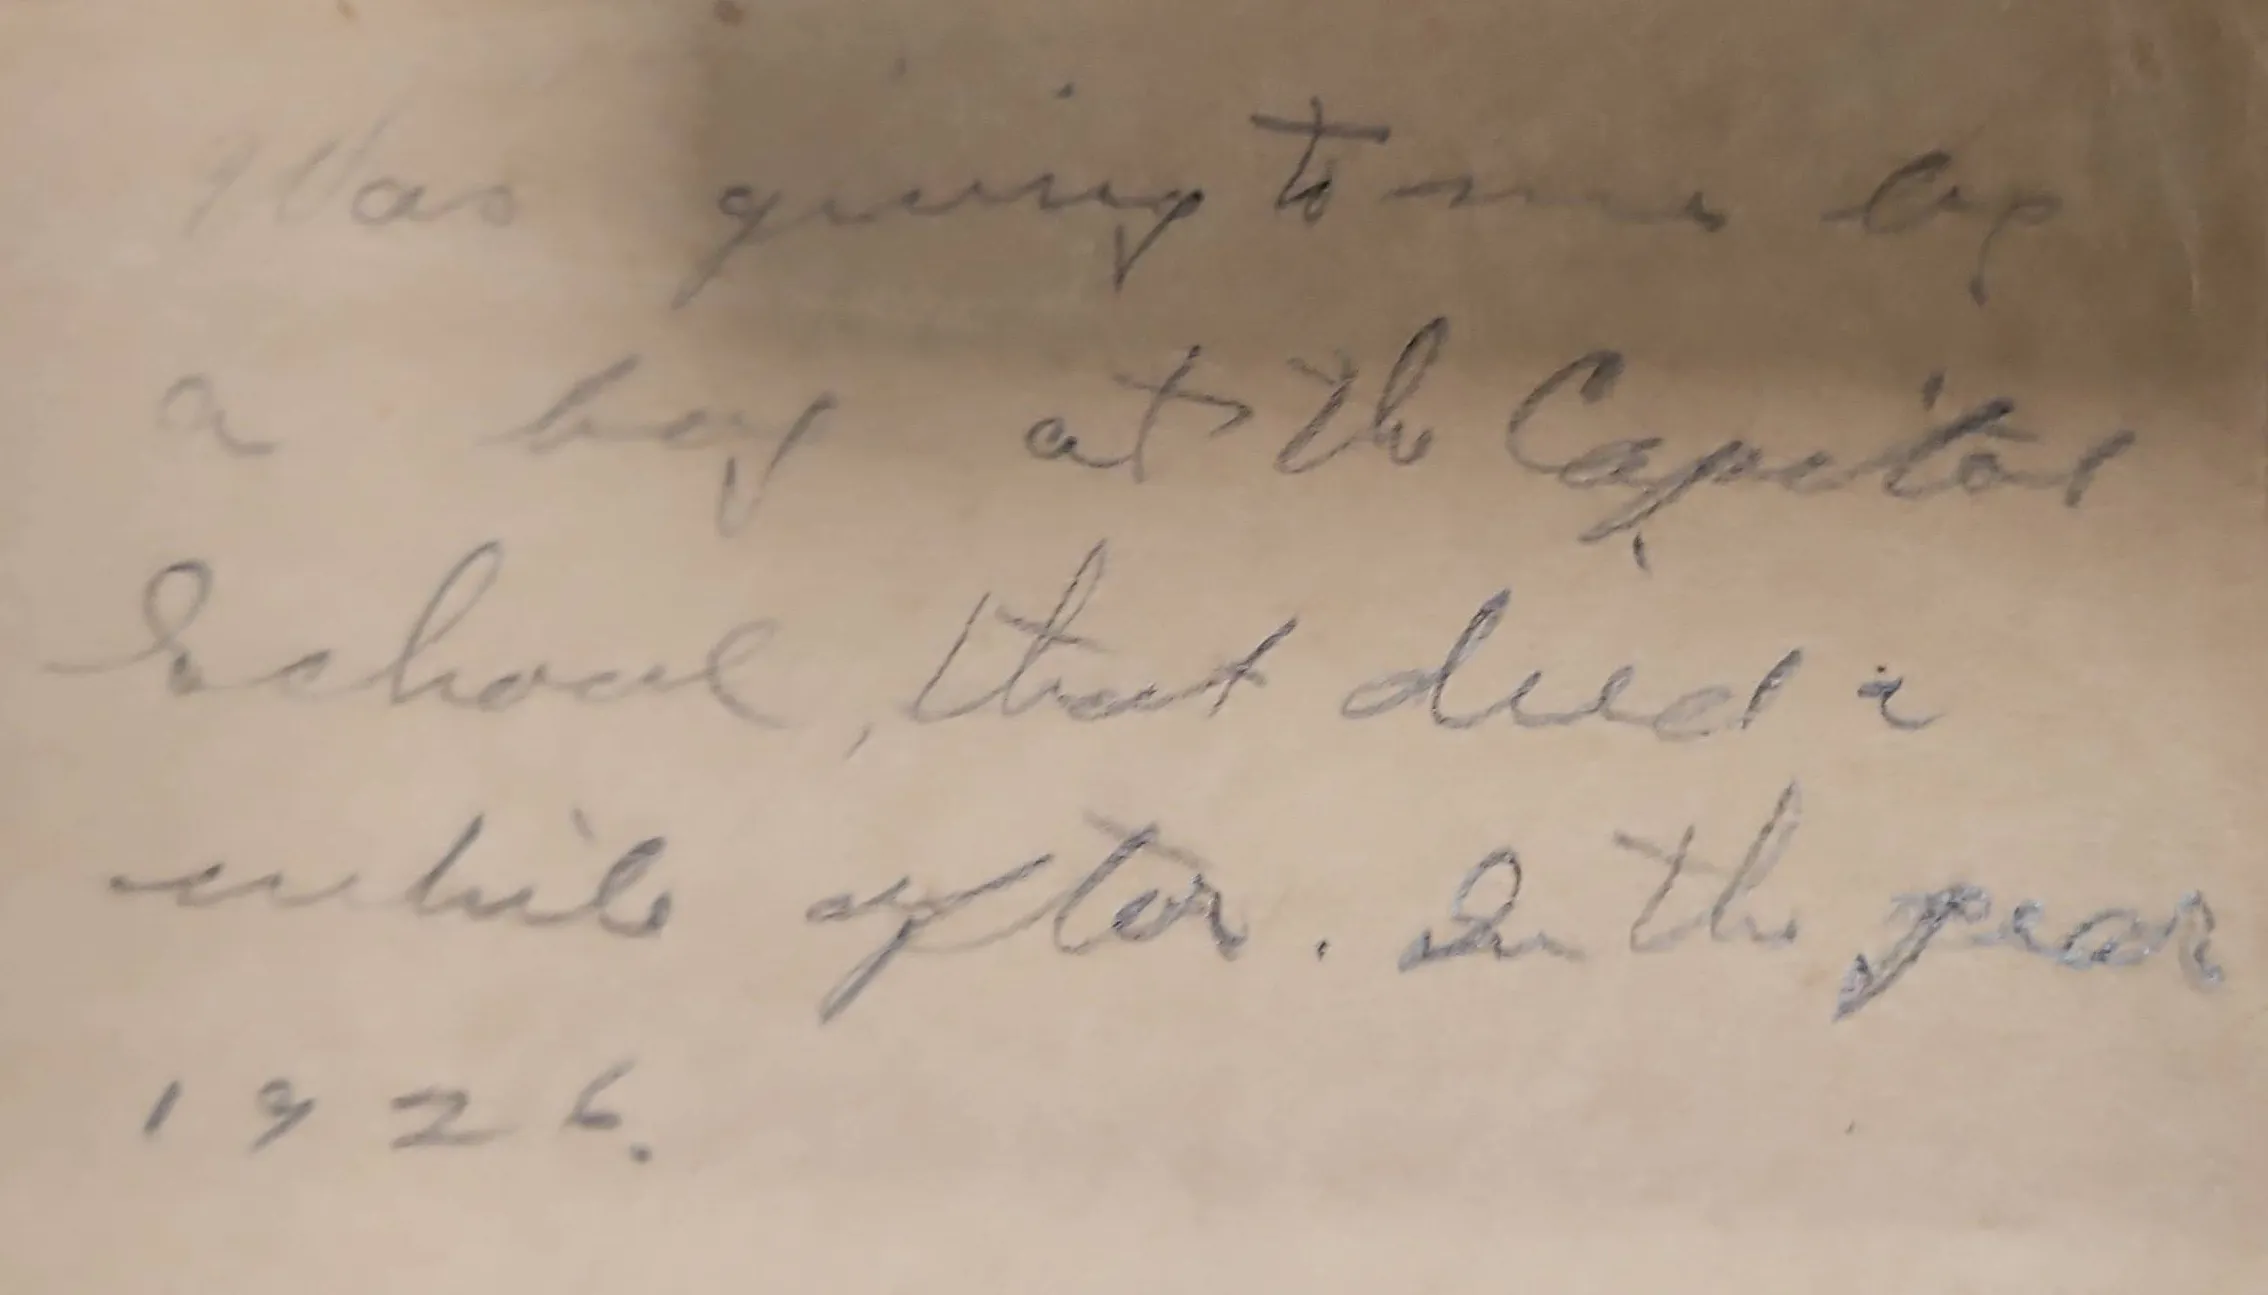 Was giving to me by
a boy at the Capitol
School, that died a
while after. In the year
1926.